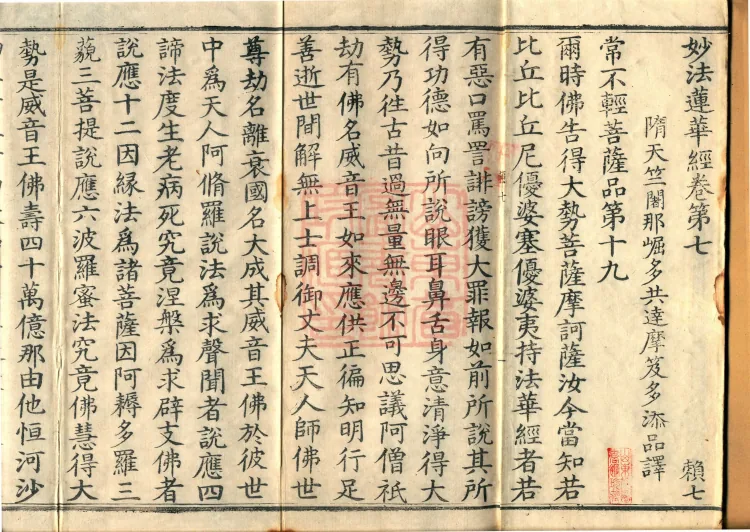 妙法蓮華經卷第七　賴七
隋天竺闍那崛多共達摩笈多添品譯
常不輕菩薩品第十九
爾時佛告得大勢菩薩摩訶薩汝今當知若
比丘比丘尼優婆塞優婆夷持法華經者若
有惡口罵詈誹謗獲大罪報如前所說其所
得功德如向所說眼耳鼻舌身意清淨得大
勢乃往古昔過無量無邊不可思議阿僧祇
劫有佛名威音王如來應供正徧知明行足
善逝世間解無上士調御丈夫天人師佛世
尊劫名離衰國名大成其威音王佛於彼世
中為天人阿脩羅說法為求聲聞者說應四
諦法度生老病死究竟涅槃為求辟支佛者
說應十二因緣法為諸菩薩因阿耨多羅三
藐三菩提說應六波羅蜜法究竟佛慧得大
勢是威音王佛壽四十萬億那由他恒河沙